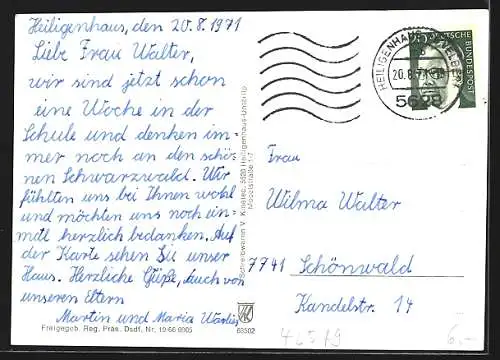 Heiligenhaus, den 20.8.1971
Liebe Frau Walter,
wir sind jetzt schon
eine Woche in der
Schule und denken im-
mer noch an den schö-
nen Schwarzwald. Wir
fühlten uns bei Ihnen wohl
und möchten uns noch ein-
mal herzlich bedanken. Auf
der Karte sehen Sie unser
Haus. Herzliche Güße, auch von
unseren Eltern
Martin und Maria
Freigegeb. Reg. Präs. Dsdf. Nr. 19/66
68502
Schreibwaren V. 5628 Heiligenhaus-Unterilp
Moselstraße 1-7
HEILIGENHAUS
20.8.71
5628
DEUTSCHE
BUNDESPOST
Frau
Wilma Walter
7741 Schönwald
Kandelstr. 14
6,-